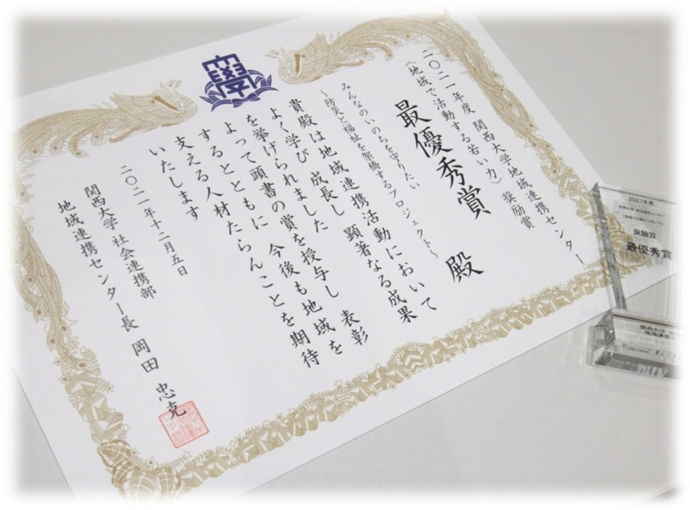 二〇二一年度 関西大学地域連携センター
〈地域で活動する若い力〉 奨励賞
最優秀賞
みんなのいのちを守りたい
～防災と福祉を架橋するプロジェクト～
殿
貴殿は地域連携活動において
よく学び 成長し 顕著なる成果
を挙げられました
よって頭書の賞を授与し 表彰
するとともに 今後も地域を
支える人材たらんことを期待
いたします
二〇二一年十二月五日
関西大学 社会連携部
地域連携センター長 岡田 忠克
2021年度
奨励賞
最優秀賞